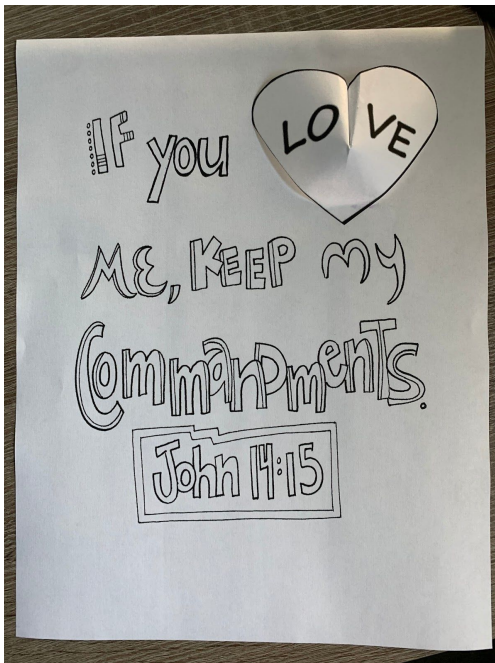 If you LOVE
ME, KEEP my
CommanDmenTs.
John 14:15